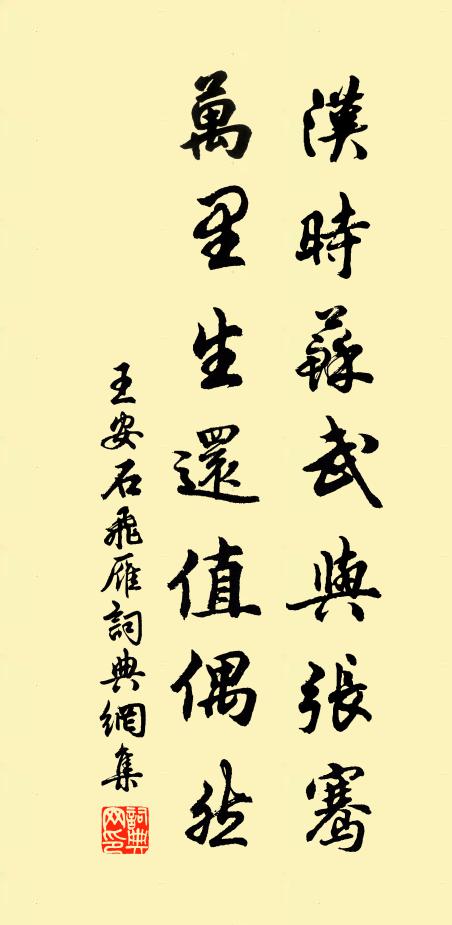 漢時蘇武與張騫
萬里生還值偶然
王安石飛雁詞典網集
詞典網印